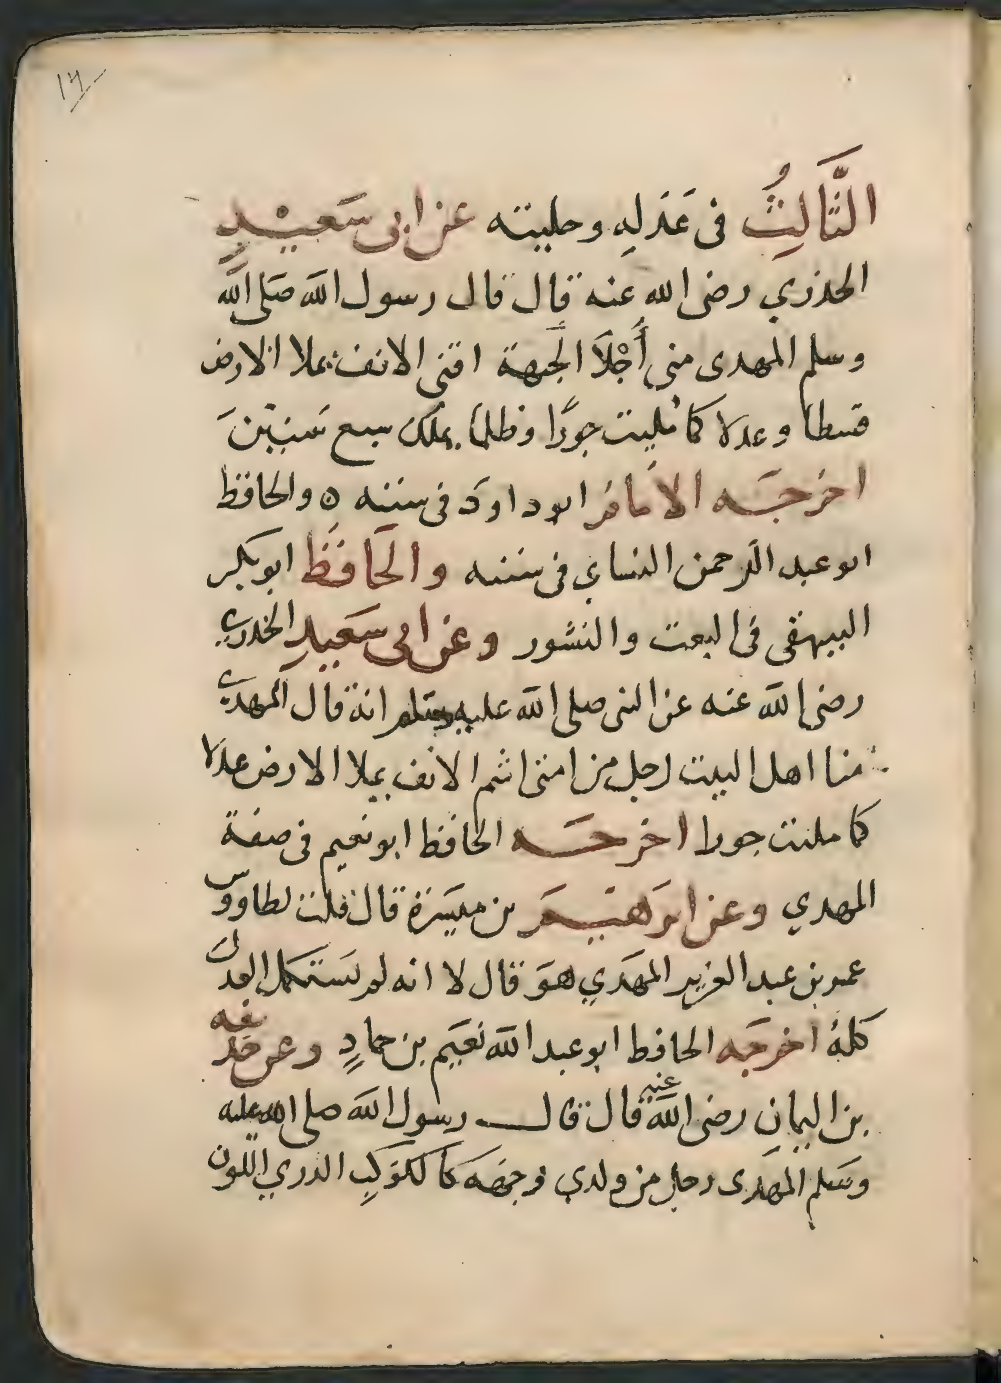 ١٦
الثَّالِثُ في عَدْلِهِ وحليته عن ابي سَعِيْدٍ
الخدري رضى الله عنه قال قال رسول الله صَلى الله
وسلم المهدى مني أَجْلَا الجَبهة اقنى الانف يملا الارض
قسطا وعدلا كما مُليت جورًا وظلما يملك سبع سَنِيْنَ
اخرجَه الاِمَامُ ابو داود في سننه ٥ والحافظ
ابو عبد الرحمن النساي في سننه والحَافظ ابو بكر
البيهقى في البعث والنشور وعن ابى سَعيدٍ الخدري
رضى الله عنه عن النبى صلى الله عليه وسلم انه قال المهدي
منا اهل البيت رجل من امتى اشم الانف يملا الارض عدلا
كما ملئت جورا اخرجَه الحافظ ابو نعيم في صفة
المهدي وعن ابرَهيمَ بن ميسَرة قال قلت لطاووس
عمر بن عبد العزيز المهَدي هوَ قال لا انه لم يَستكمل العدل
كلهُ اخرجَه الحافظ ابو عبد الله نعَيَم بن حمادٍ وعن حُذيفه
بن اليمان رضى الله عنه قال قال رسول الله صلى الله عليه
وسَلم المهدى رجل من ولدي وجهَه كالكوَكبِ الدري اللون